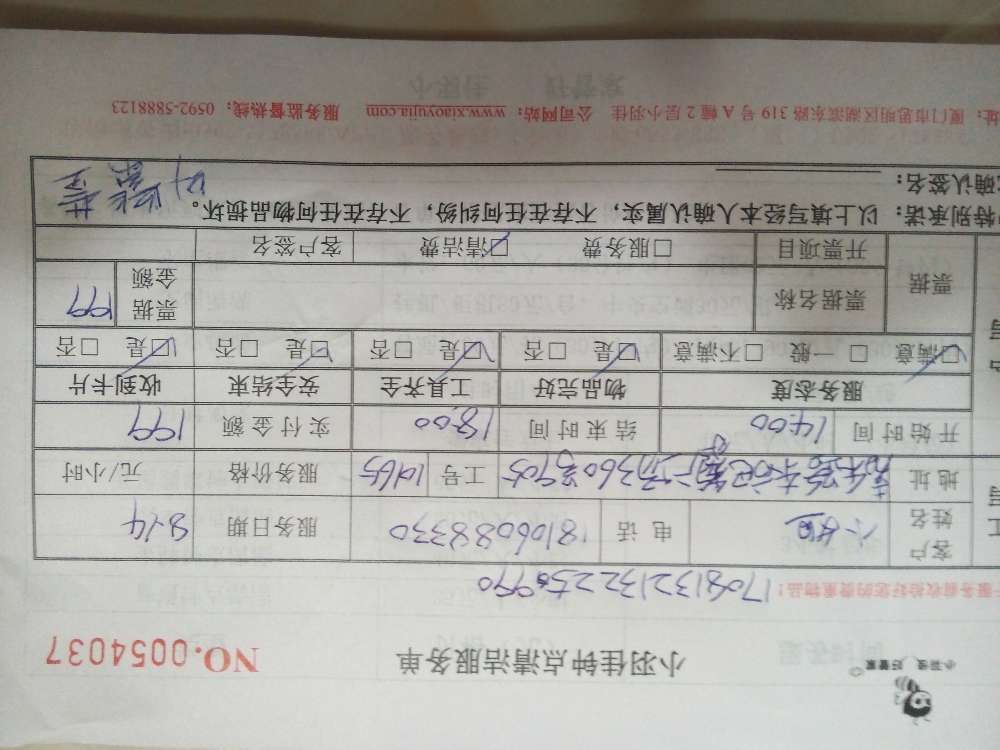 小羽佳 好管家
小羽佳钟点清洁服务单
NO.0054037
服务前收拾好您的贵重物品!
1708132132256990
客户姓名 小姐 电话 18106088330 服务日期 8.14
地址 360号905 工号 1465 服务价格 元/小时
开始时间 14:00 结束时间 18:00 实付金额 199
服务态度 物品完好 工具齐全 安全结束 收到卡片
☑满意 □一般 □不满意 ☑是 □否 ☑是 □否 ☑是 □否 ☑是 □否
票据 票据名称 票据金额 199
开票项目 □服务费 ☑清洁费 客户签名
特别承诺: 以上填写经本人确认属实,不存在任何纠纷,不存在任何物品损坏。
确认签名:
址: 厦门市思明区湖滨东路 319 号 A 幢 2 层小羽佳 公司网站: www.xiaoyujia.com 服务监督热线: 0592-5888123